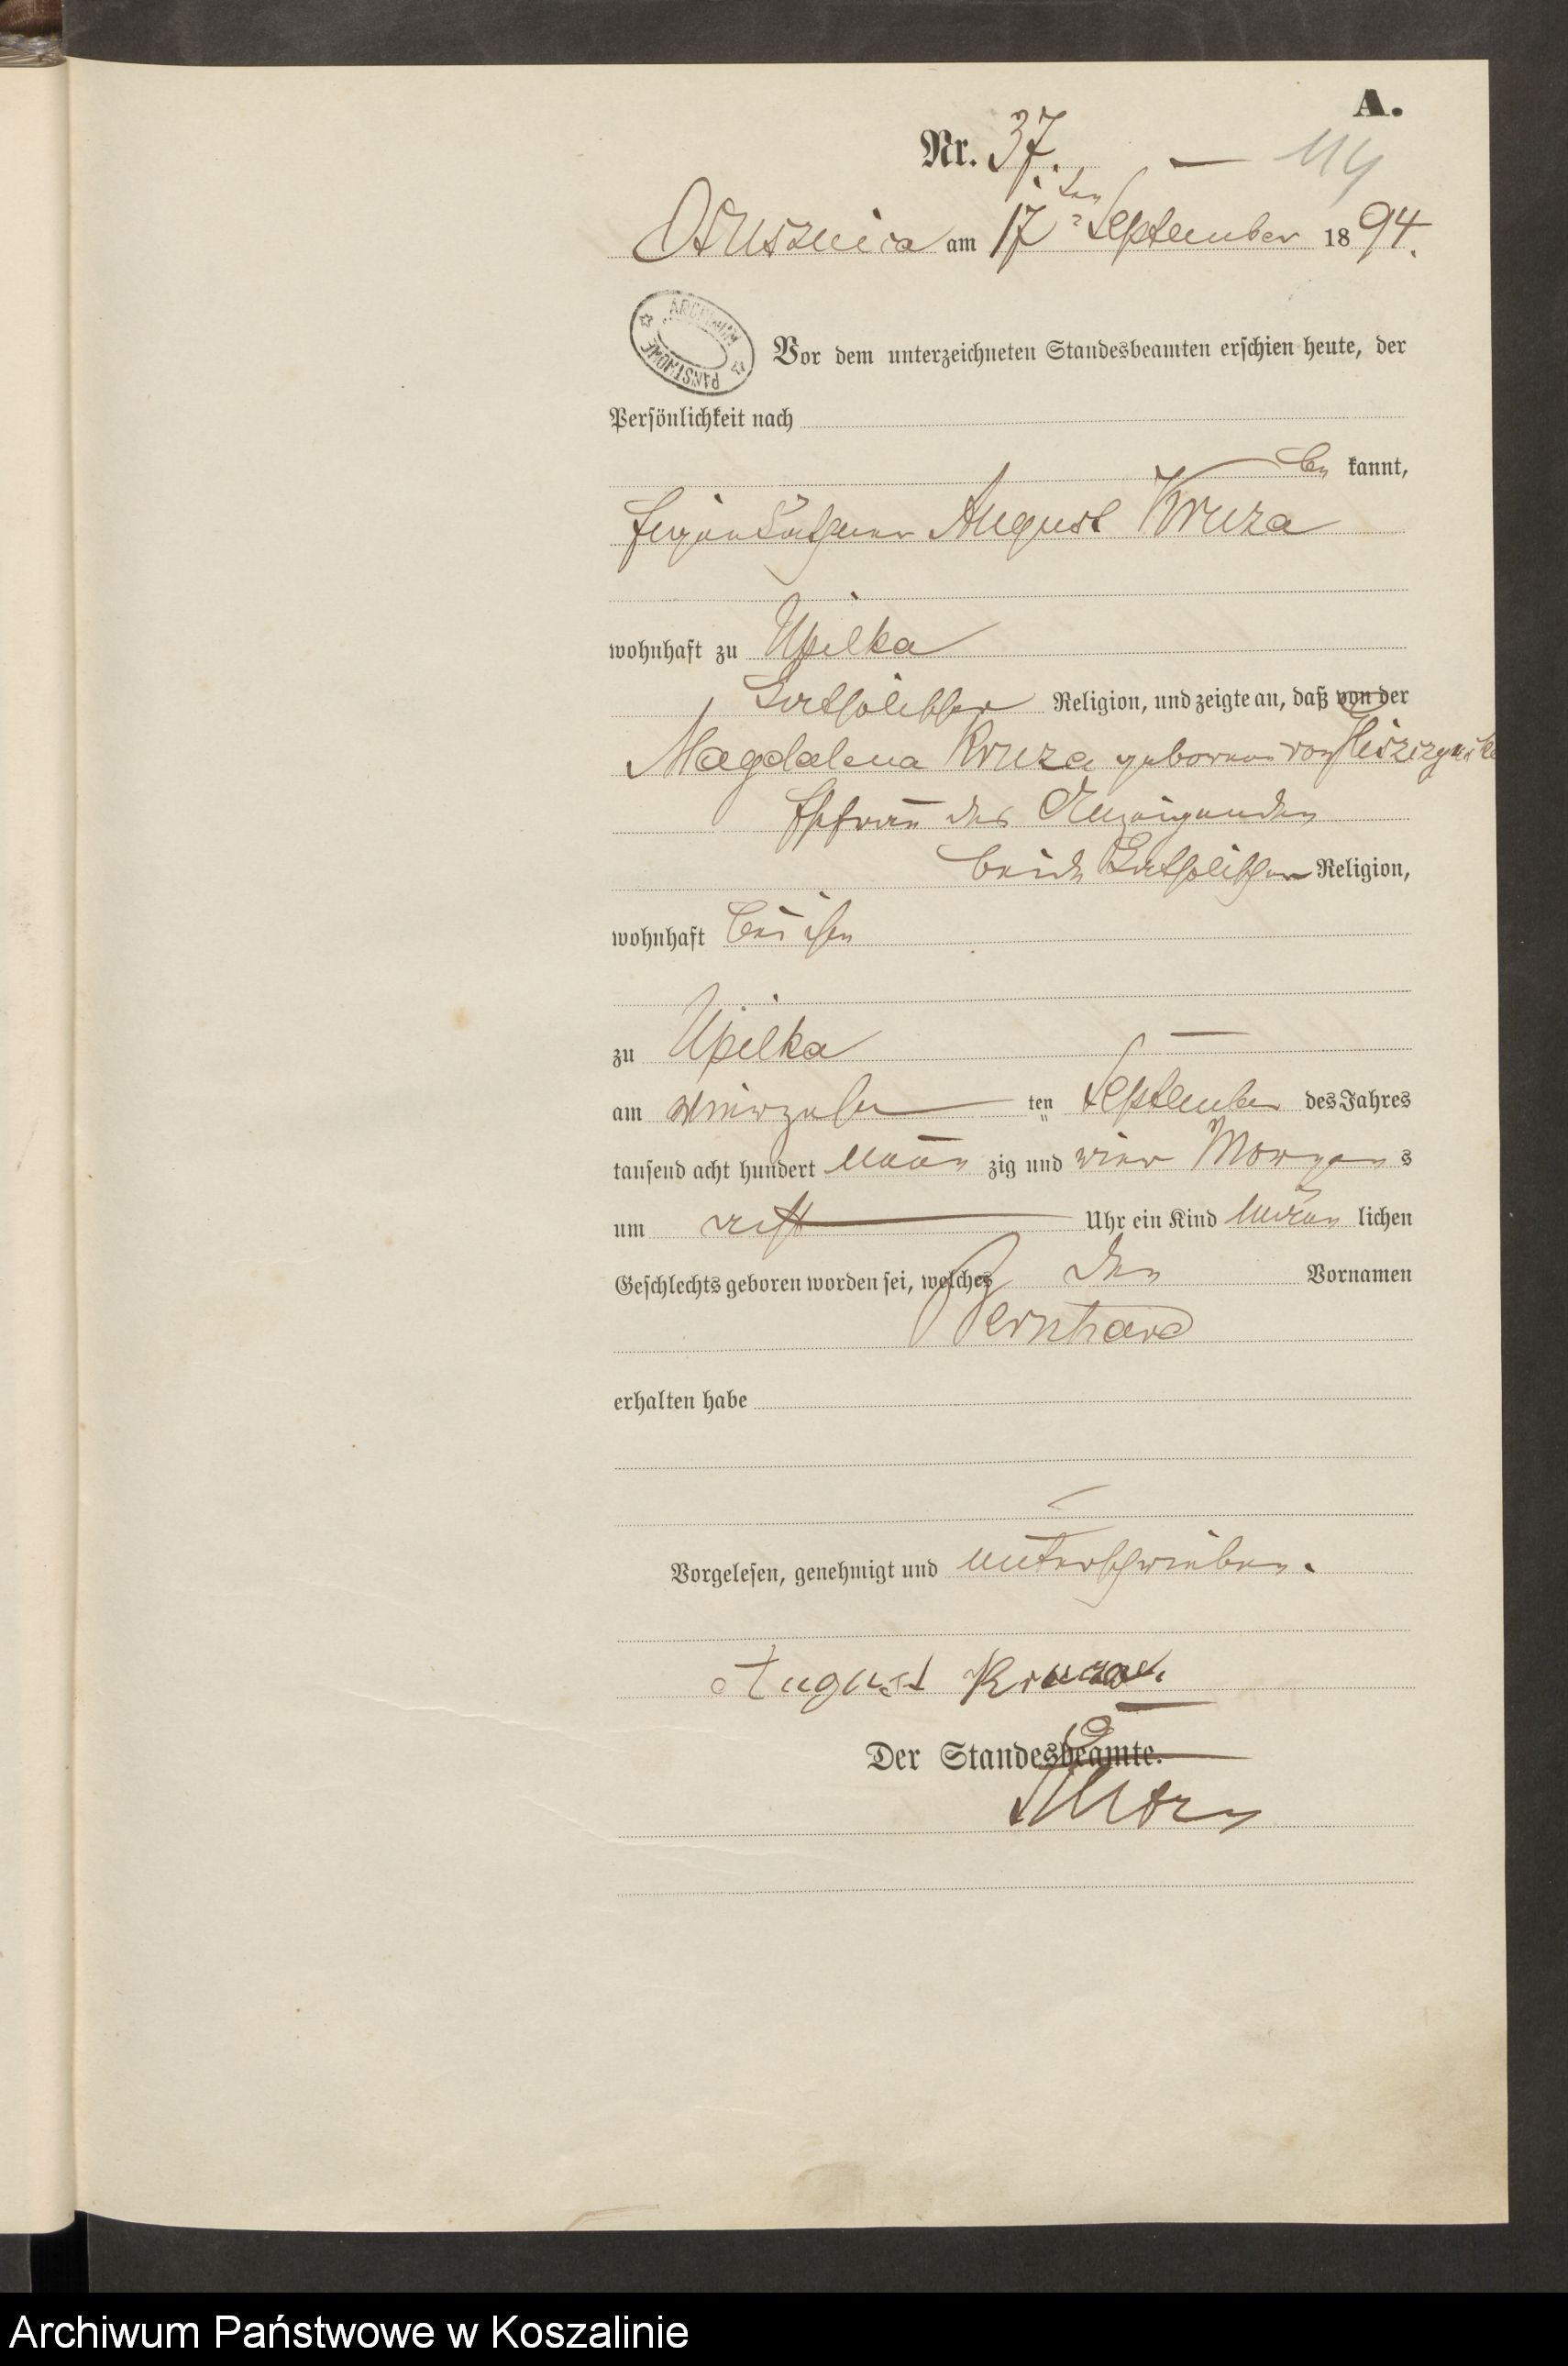 A.
Nr. 37. 114
Oslusznica am 17ten September 1894.
ARCHIWUM PAŃSTWOWE
Vor dem unterzeichneten Standesbeamten erschien heute, der
Persönlichkeit nach
be kannt,
Eigenkäthner August Kruza
wohnhaft zu Upilka
katholischer Religion, und zeigte an, daß von der
Magdalena Kruza geborene von
Ehefrau des Anzeigenden
beide katholischer Religion,
wohnhaft bei ihm
zu Upilka
am vierzehn ten September des Jahres
tausend acht hundert neun zig und vier Morgens
um acht Uhr ein Kind männ lichen
Geschlechts geboren worden sei, welches den Vornamen
Bernhard
erhalten habe
Vorgelesen, genehmigt und unterschrieben.
August Kruza.
Der Standesbeamte.
Archiwum Państwowe w Koszalinie